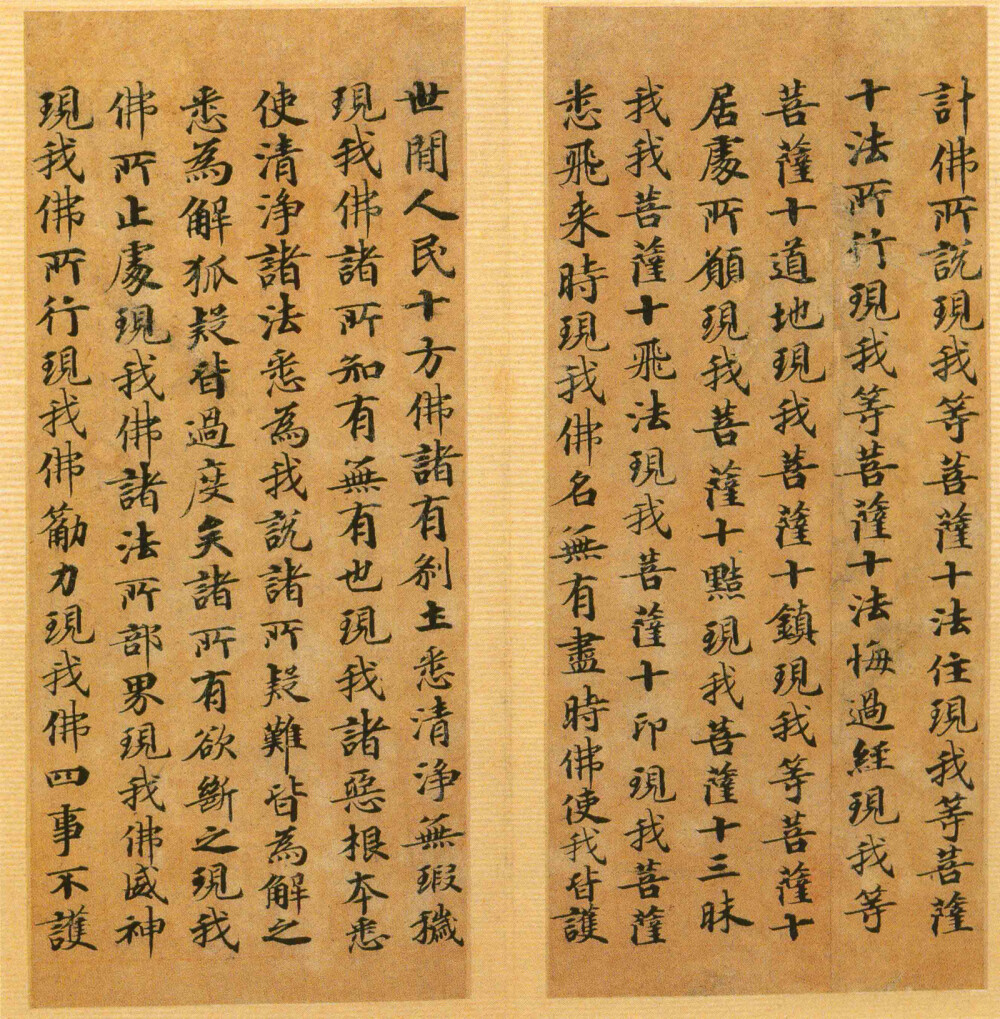 計佛所説現我等菩薩十法住現我等菩薩
十法所行現我等菩薩十法悔過経現我等
菩薩十道地現我菩薩十鎮現我等菩薩十
居處所願現我菩薩十黠現我菩薩十三昧
我我菩薩十飛法現我菩薩十印現我菩薩
悉飛来時現我佛名無有盡時佛使我皆護
世間人民十方佛諸有刹土悉清浄無瑕穢
現我佛諸所知有無有也現我諸惡根本悉
使清浄諸法悉為我説諸所疑難皆為解之
悉為解狐疑皆過度矣諸所有欲斷之現我
佛所止處現我佛諸法所部界現我佛威神
現我佛所行現我佛勸力現我佛四事不護